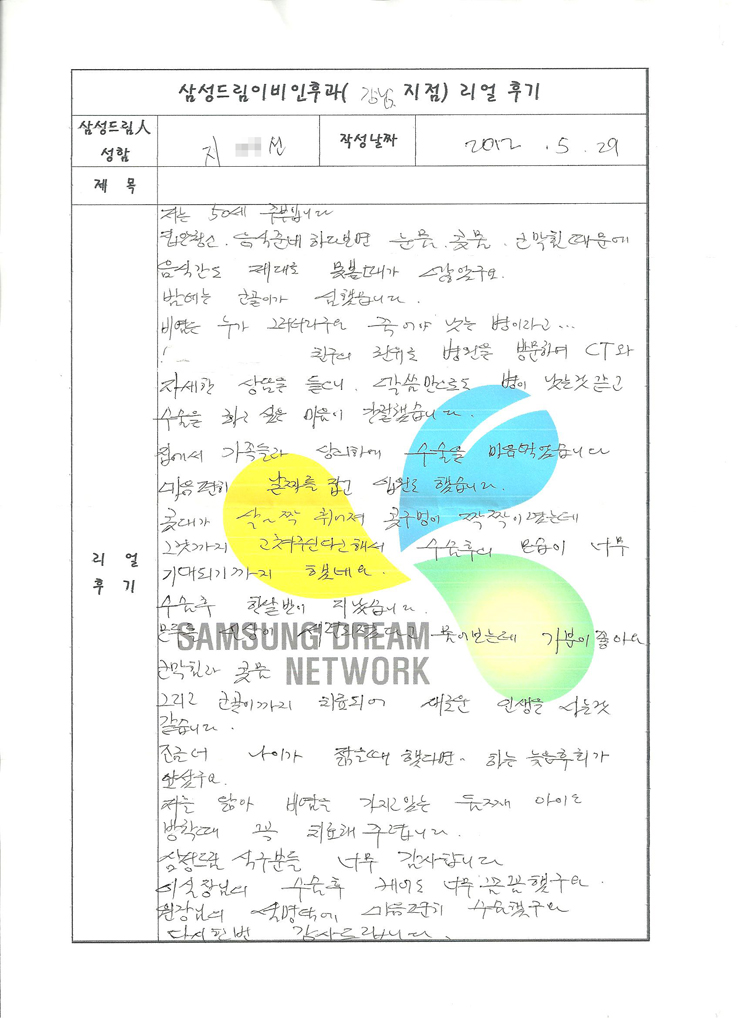 삼성드림이비인후과( 강남 지점) 리얼 후기
삼성드림人
성함
지 선
작성날짜
2012 . 5 . 29
제 목
리 얼
후 기
저는 50세 주부입니다
집안청소. 음식준비 하다보면 눈물. 콧물. 코막힘때문에
음식간도 제대로 못볼때가 많았구요.
밤에는 코골이가 심했습니다.
비염은 누가 그러더라구요 죽어야 낫는 병이라고...
친구의 권유로 병원을 방문하며 CT와
자세한 상담을 들으니. 말씀만으로도 병이 낫는것 같고
수술을 하고 싶은 마음이 간절했습니다.
집에서 가족들과 상의하에 수술을 마음먹었습니다
마음편히 날짜를 잡고 입원도 했습니다.
콧대가 살~짝 휘어져 콧구멍이 짝짝이였는데
그것까지 고쳐주신다고해서 수술후의 모습이 너무
기대되기까지 했네요.
수술후 한달반이 지났습니다.
모두들 인상이 세련되졌다고 물어보는데 기분이 좋아요
코막힘과 콧물
그리고 코골이까지 치료되어 새로운 인생을 사는것
같습니다.
조금더 나이가 젊을때 했다면.. 하는 늦은후회가
앞섰구요.
저를 닮아 비염을 가지고있는 둘째 아이도
방학때 꼭 치료해 주렵니다.
삼성드림 식구분들 너무 감사합니다
이실장님의 수술후 케어도 너무 꼼꼼했구요.
원장님의 설명덕에 마음편히 수술했구요
다시한번 감사드립니다.
SAMSUNG DREAM
NETWORK